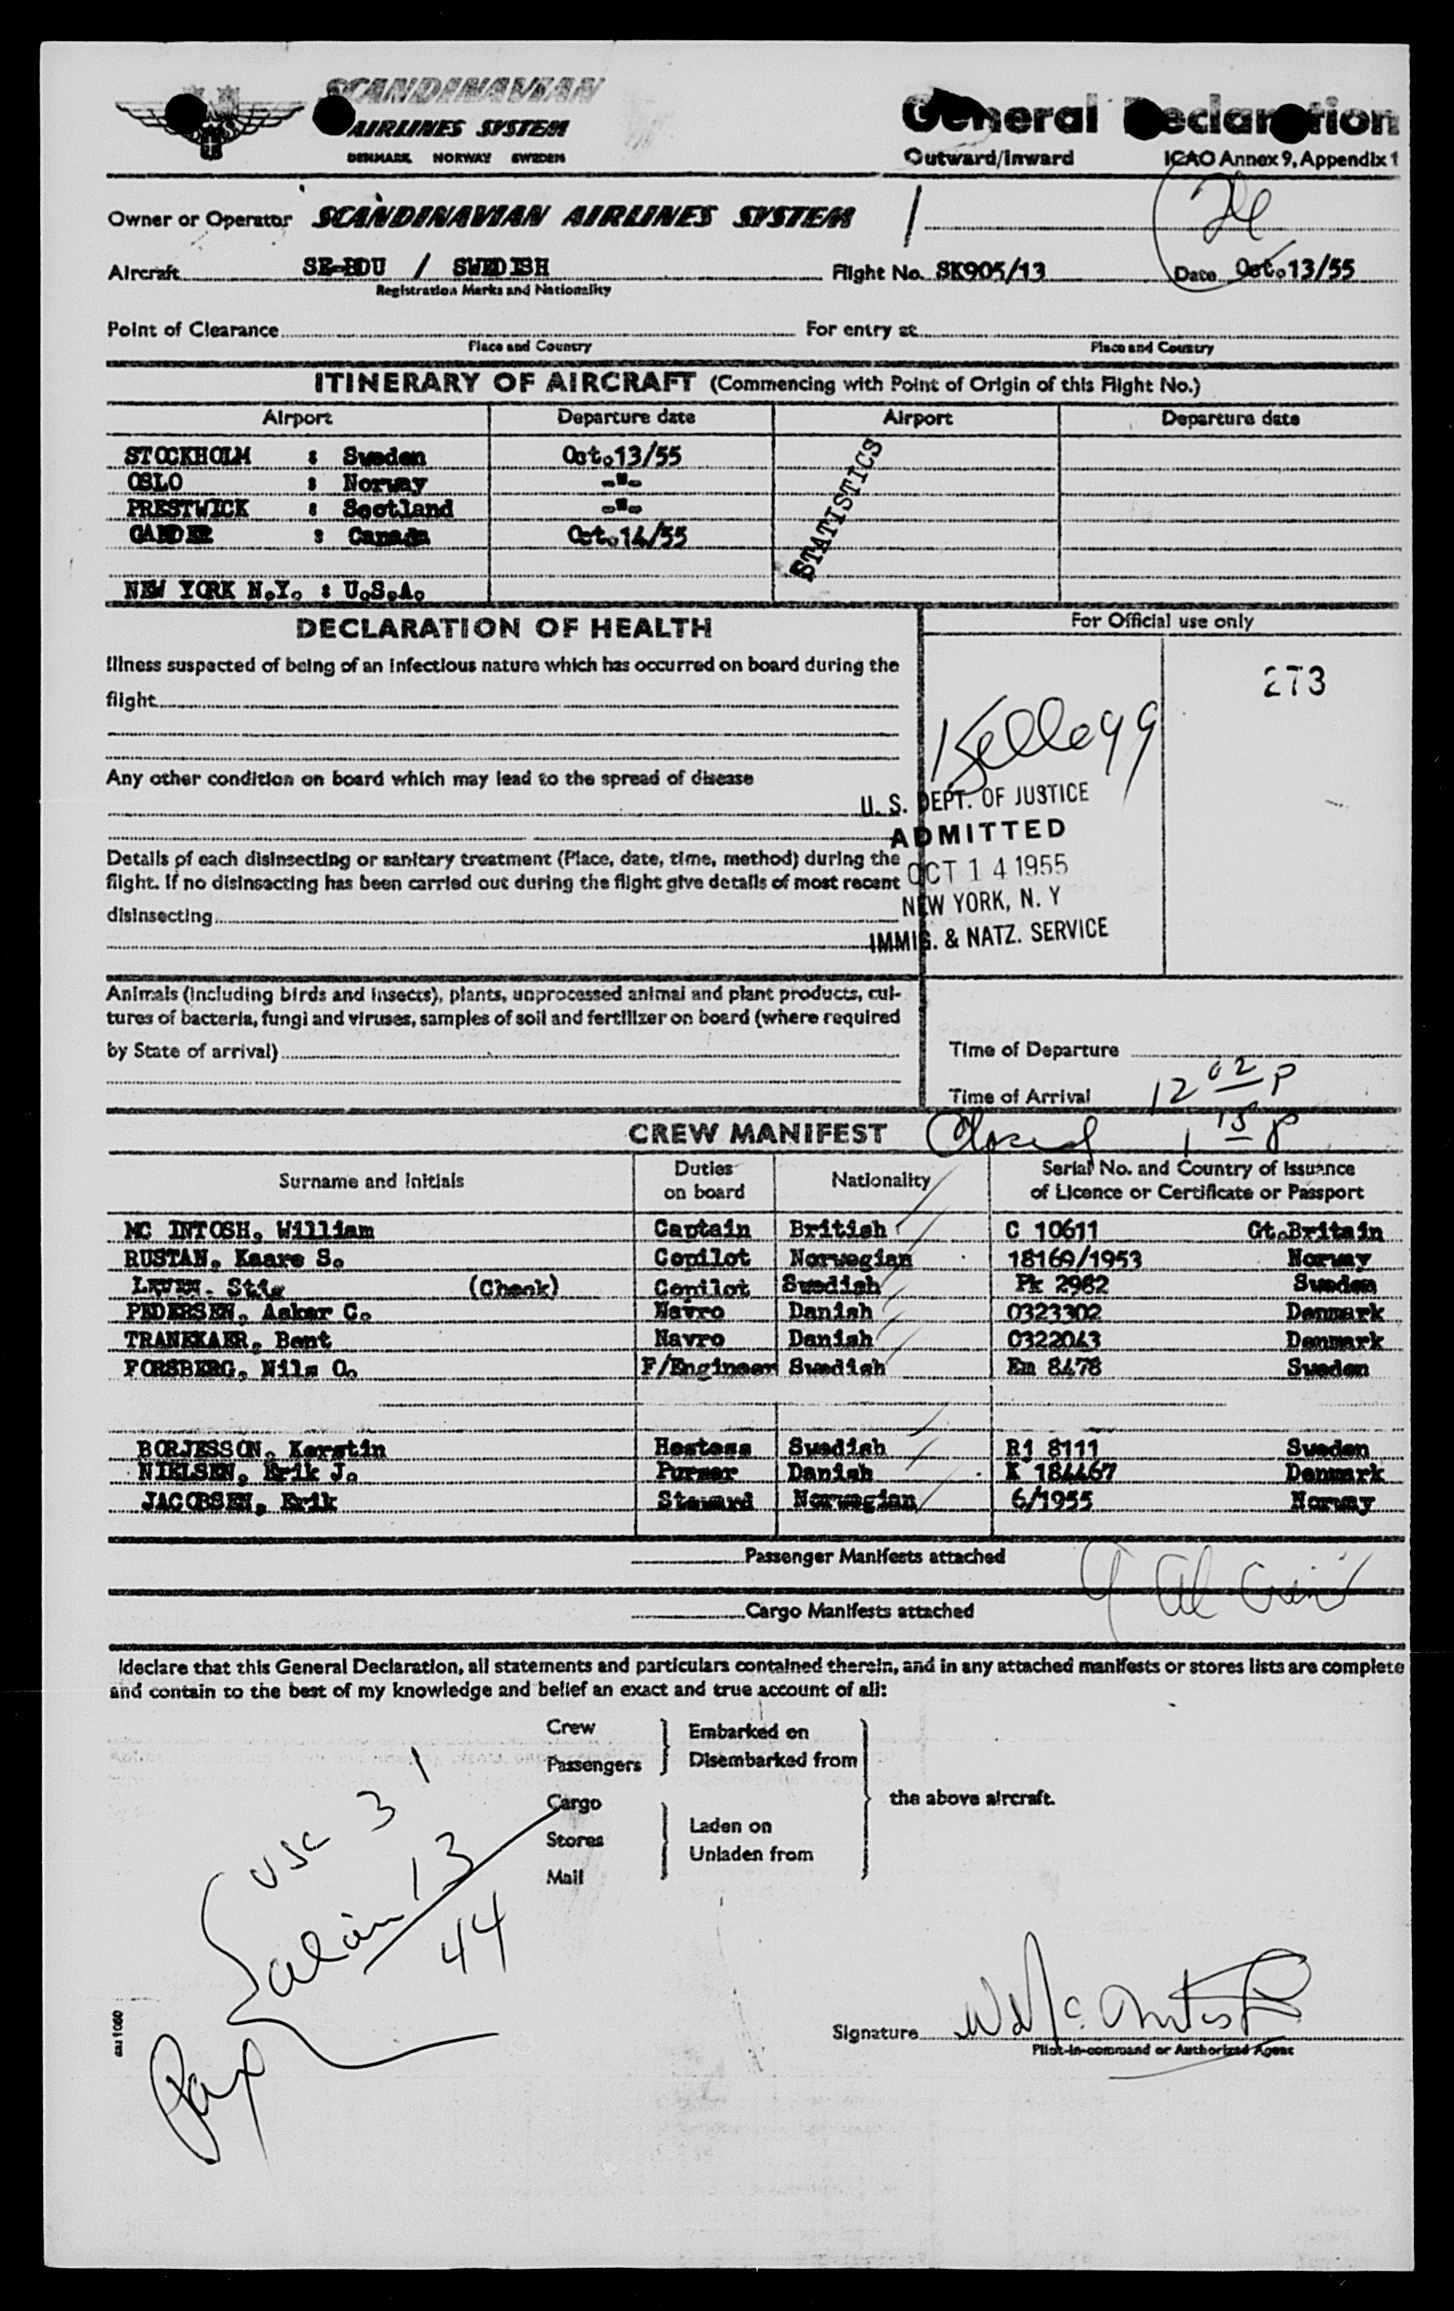 SCANDINAVIAN
AIRLINES SYSTEM
DENMARK NORWAY SWEDEN
General Declaration
Outward/Inward ICAO Annex 9, Appendix 1
Owner or Operator SCANDINAVIAN AIRLINES SYSTEM
Aircraft SE-BDU / SWEDISH Flight No. SK905/13 Date Oct. 13/55
Registration Marks and Nationality
Point of Clearance For entry at
Place and Country Place and Country
ITINERARY OF AIRCRAFT (Commencing with Point of Origin of this Flight No.)
Airport Departure date Airport Departure date
STOCKHOLM : Sweden Oct.13/55
OSLO : Norway -"-
PRESTWICK : Scotland -"-
GANDER : Canada Oct.14/55
STATISTICS
NEW YORK N.Y. : U.S.A.
DECLARATION OF HEALTH For Official use only
Illness suspected of being of an infectious nature which has occurred on board during the
flight
273
Kellogg
Any other condition on board which may lead to the spread of disease
U. S. DEPT. OF JUSTICE
ADMITTED
OCT 14 1955
NEW YORK, N. Y
IMMIG. & NATZ. SERVICE
Details of each disinsecting or sanitary treatment (Place, date, time, method) during the
flight. If no disinsecting has been carried out during the flight give details of most recent
disinsecting
Animals (including birds and insects), plants, unprocessed animal and plant products, cul-
tures of bacteria, fungi and viruses, samples of soil and fertilizer on board (where required
by State of arrival)
Time of Departure
Time of Arrival 12 02 P
CREW MANIFEST Closed 1 15 P
Surname and Initials Duties on board Nationality Serial No. and Country of Issuance
of Licence or Certificate or Passport
MC INTOSH, William Captain British C 10611 Gt.Britain
RUSTAN, Kaare S. Copilot Norwegian 18169/1953 Norway
LEVEN, Stig (Check) Copilot Swedish Pk 2982 Sweden
PEDERSEN, Asker C. Navro Danish 0323302 Denmark
TRANEKAER, Bent Navro Danish 0322043 Denmark
FORSBERG, Nils O. F/Engineer Swedish Em 8478 Sweden
BORJESSON, Kerstin Hostess Swedish Rj 8111 Sweden
NIELSEN, Erik J. Purser Danish K 184467 Denmark
JACOBSEN, Erik Steward Norwegian 6/1955 Norway
Passenger Manifests attached
Cargo Manifests attached
I declare that this General Declaration, all statements and particulars contained therein, and in any attached manifests or stores lists are complete
and contain to the best of my knowledge and belief an exact and true account of all:
Crew Embarked on
Passengers Disembarked from
the above aircraft.
Cargo Laden on
Stores Unladen from
Mail
Pax
USC 31
alien 13
44
Signature W McIntosh
Pilot-in-command or Authorized Agent
sas 1060